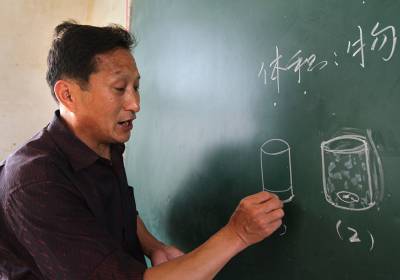 体积：物
(2)